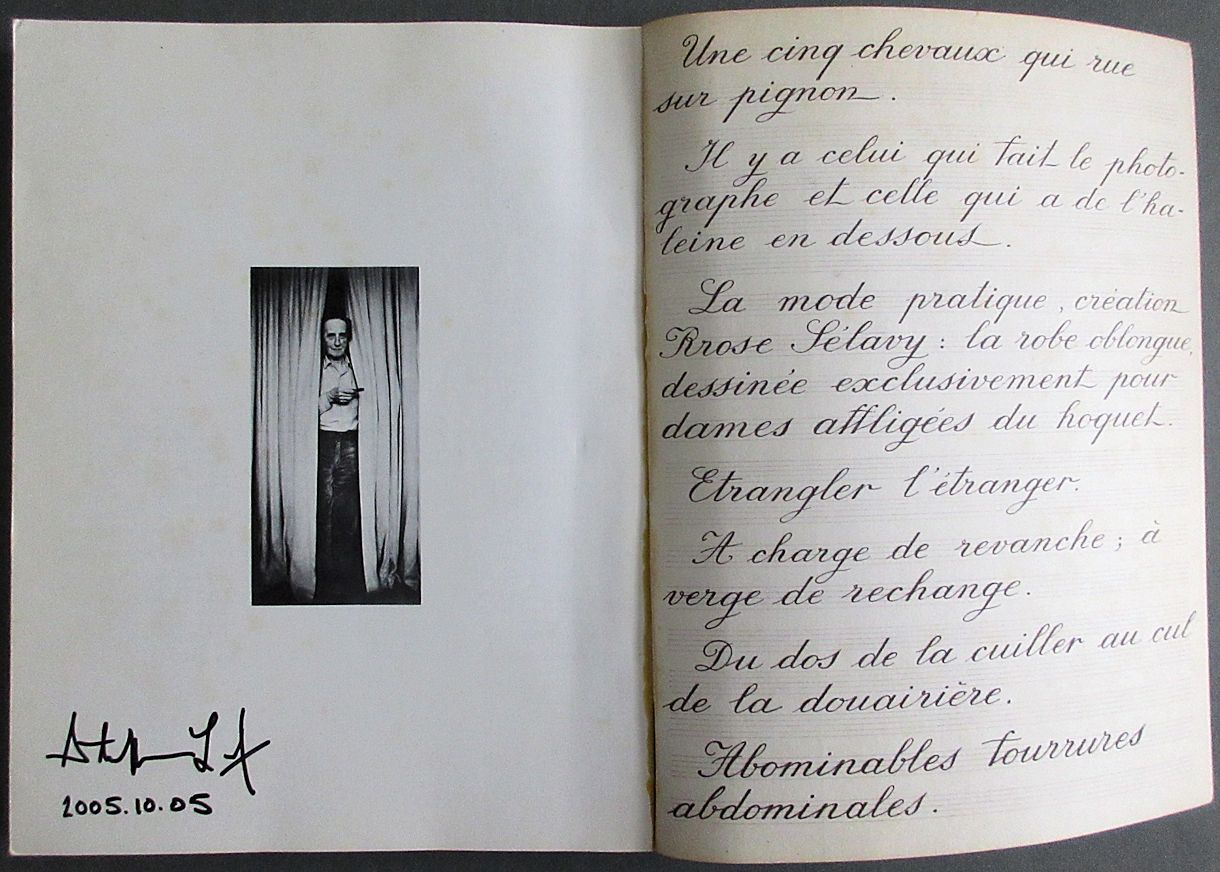 2005.10.05
Une cinq chevaux qui rue
sur pignon.
Il y a celui qui fait le photo-
graphe et celle qui a de l'ha-
leine en dessous.
La mode pratique, création
Rrose Sélavy : la robe oblongue,
dessinée exclusivement pour
dames affligées du hoquet.
Etrangler l'étranger.
A charge de revanche ; à
verge de rechange.
Du dos de la cuiller au cul
de la douairière.
Abominables fourrures
abdominales.